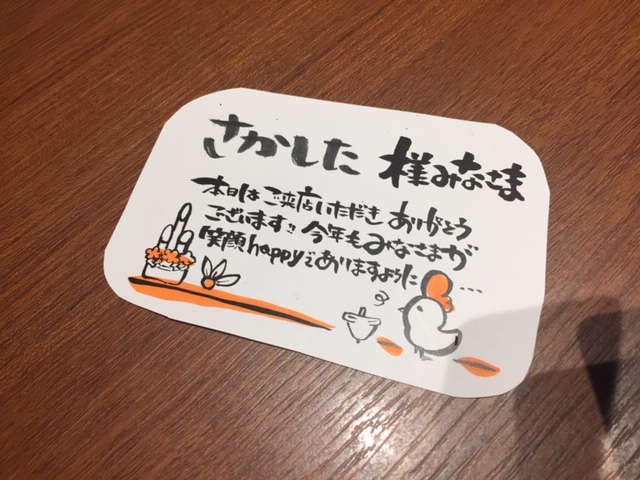 さかした 様みなさま
本日はご来店いただき ありがとう
ございます!! 今年もみなさまが
笑顔happyでありますように…